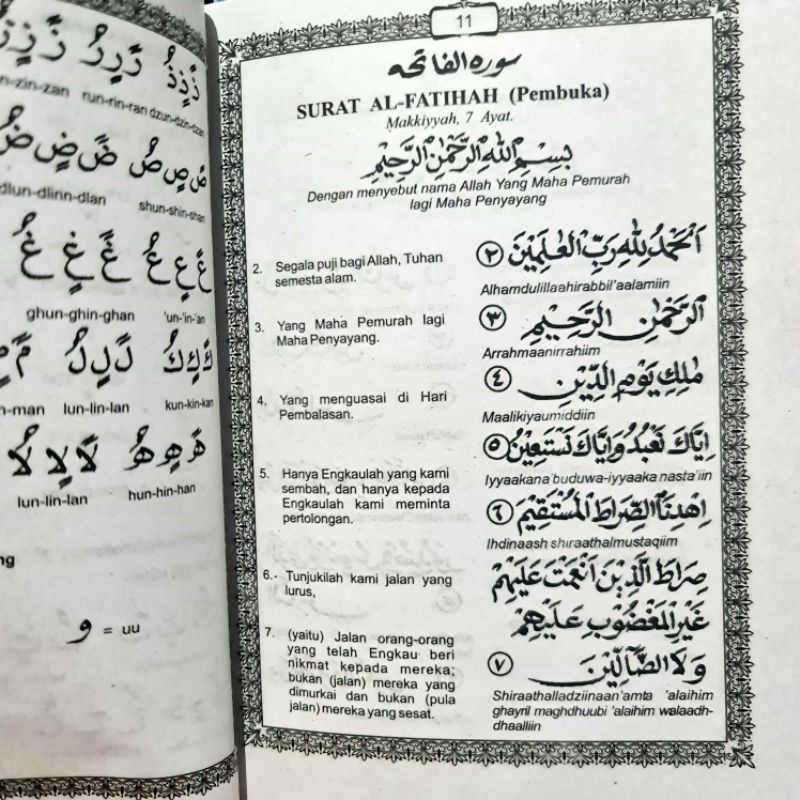 زٌ زٍ زً رٌ رٍ رً
zun-zin-zan run-rin-ran dzun-dzin-dzan
dlun-dlinn-dlan shun-shin-shan
غٌ غٍ غً عٌ عٍ عً
ghun-ghin-ghan 'un-'in-'an
n-man lun-lin-lan kun-kin-kan
lun-lin-lan hun-hin-han
ng
و = uu
11
سورة الفاتحه
SURAT AL-FATIHAH (Pembuka)
Makkiyyah, 7 Ayat.
بِسْمِ اللهِ الرَّحْمٰنِ الرَّحِيْمِ
Dengan menyebut nama Allah Yang Maha Pemurah
lagi Maha Penyayang
2. Segala puji bagi Allah, Tuhan
semesta alam.
اَلْحَمْدُ لِلّٰهِ رَبِّ الْعٰلَمِيْنَ ٢
Alhamdulillaahirabbil'aalamiin
3. Yang Maha Pemurah lagi
Maha Penyayang.
الرَّحْمٰنِ الرَّحِيْمِ ٣
Arrahmaanirrahiim
4. Yang menguasai di Hari
Pembalasan.
مٰلِكِ يَوْمِ الدِّيْنِ ٤
Maalikiyaumiddiin
5. Hanya Engkaulah yang kami
sembah, dan hanya kepada
Engkaulah kami meminta
pertolongan.
اِيَّاكَ نَعْبُدُ وَاِيَّاكَ نَسْتَعِيْنُ ٥
Iyyaakana'buduwa-iyyaaka nasta'iin
6. Tunjukilah kami jalan yang
lurus,
اِهْدِنَا الصِّرَاطَ الْمُسْتَقِيْمَ ٦
Ihdinaash shiraathalmustaqiim
7. (yaitu) Jalan orang-orang
yang telah Engkau beri
nikmat kepada mereka;
bukan (jalan) mereka yang
dimurkai dan bukan (pula
jalan) mereka yang sesat.
صِرَاطَ الَّذِيْنَ اَنْعَمْتَ عَلَيْهِمْ
غَيْرِ الْمَغْضُوْبِ عَلَيْهِمْ
وَلَا الضَّالِّيْنَ ٧
Shiraathalladziinaan'amta 'alaihim
ghayril maghdhuubi 'alaihim walaadh-
dhaalliin